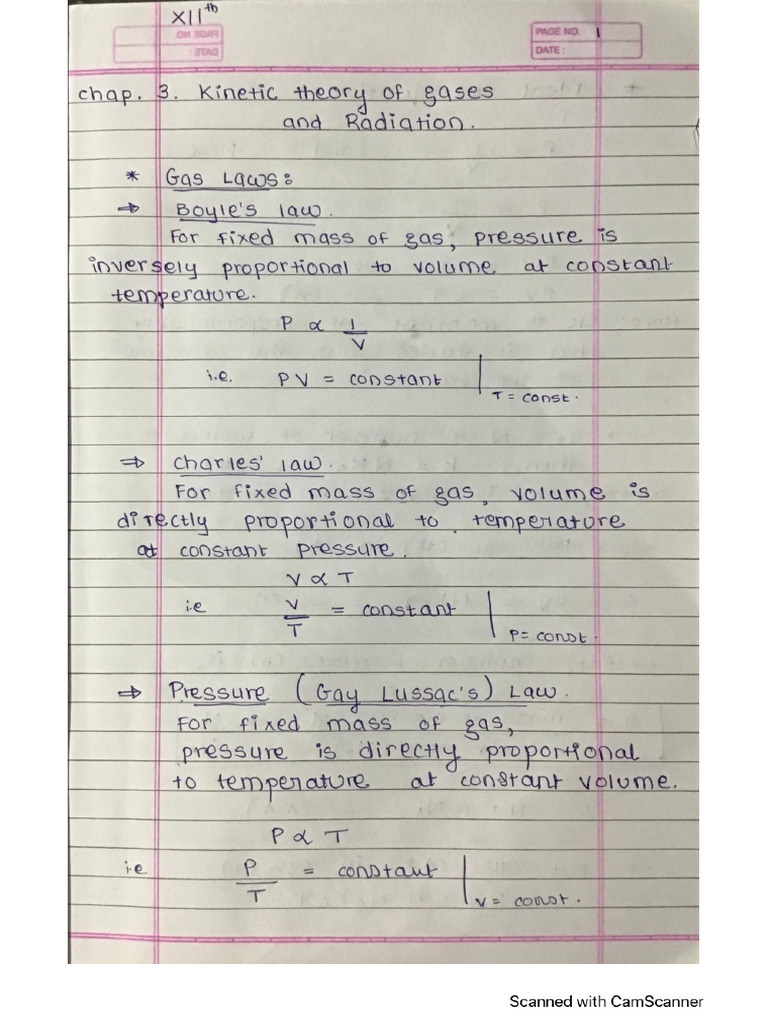 XIIth
PAGE NO. 1
DATE:
chap. 3. Kinetic theory of gases
and Radiation.
* Gas Laws:
⇒ Boyle's law.
For fixed mass of gas, pressure is
inversely proportional to volume at constant
temperature.
P ∝ 1/V
i.e. PV = constant | T = const.
⇒ Charles' law.
For fixed mass of gas, volume is
directly proportional to temperature
at constant pressure.
V ∝ T
i.e V/T = constant | P = const.
⇒ Pressure (Gay Lussac's) Law.
For fixed mass of gas,
pressure is directly proportional
to temperature at constant volume.
P ∝ T
i.e P/T = constant | V = const.
Scanned with CamScanner